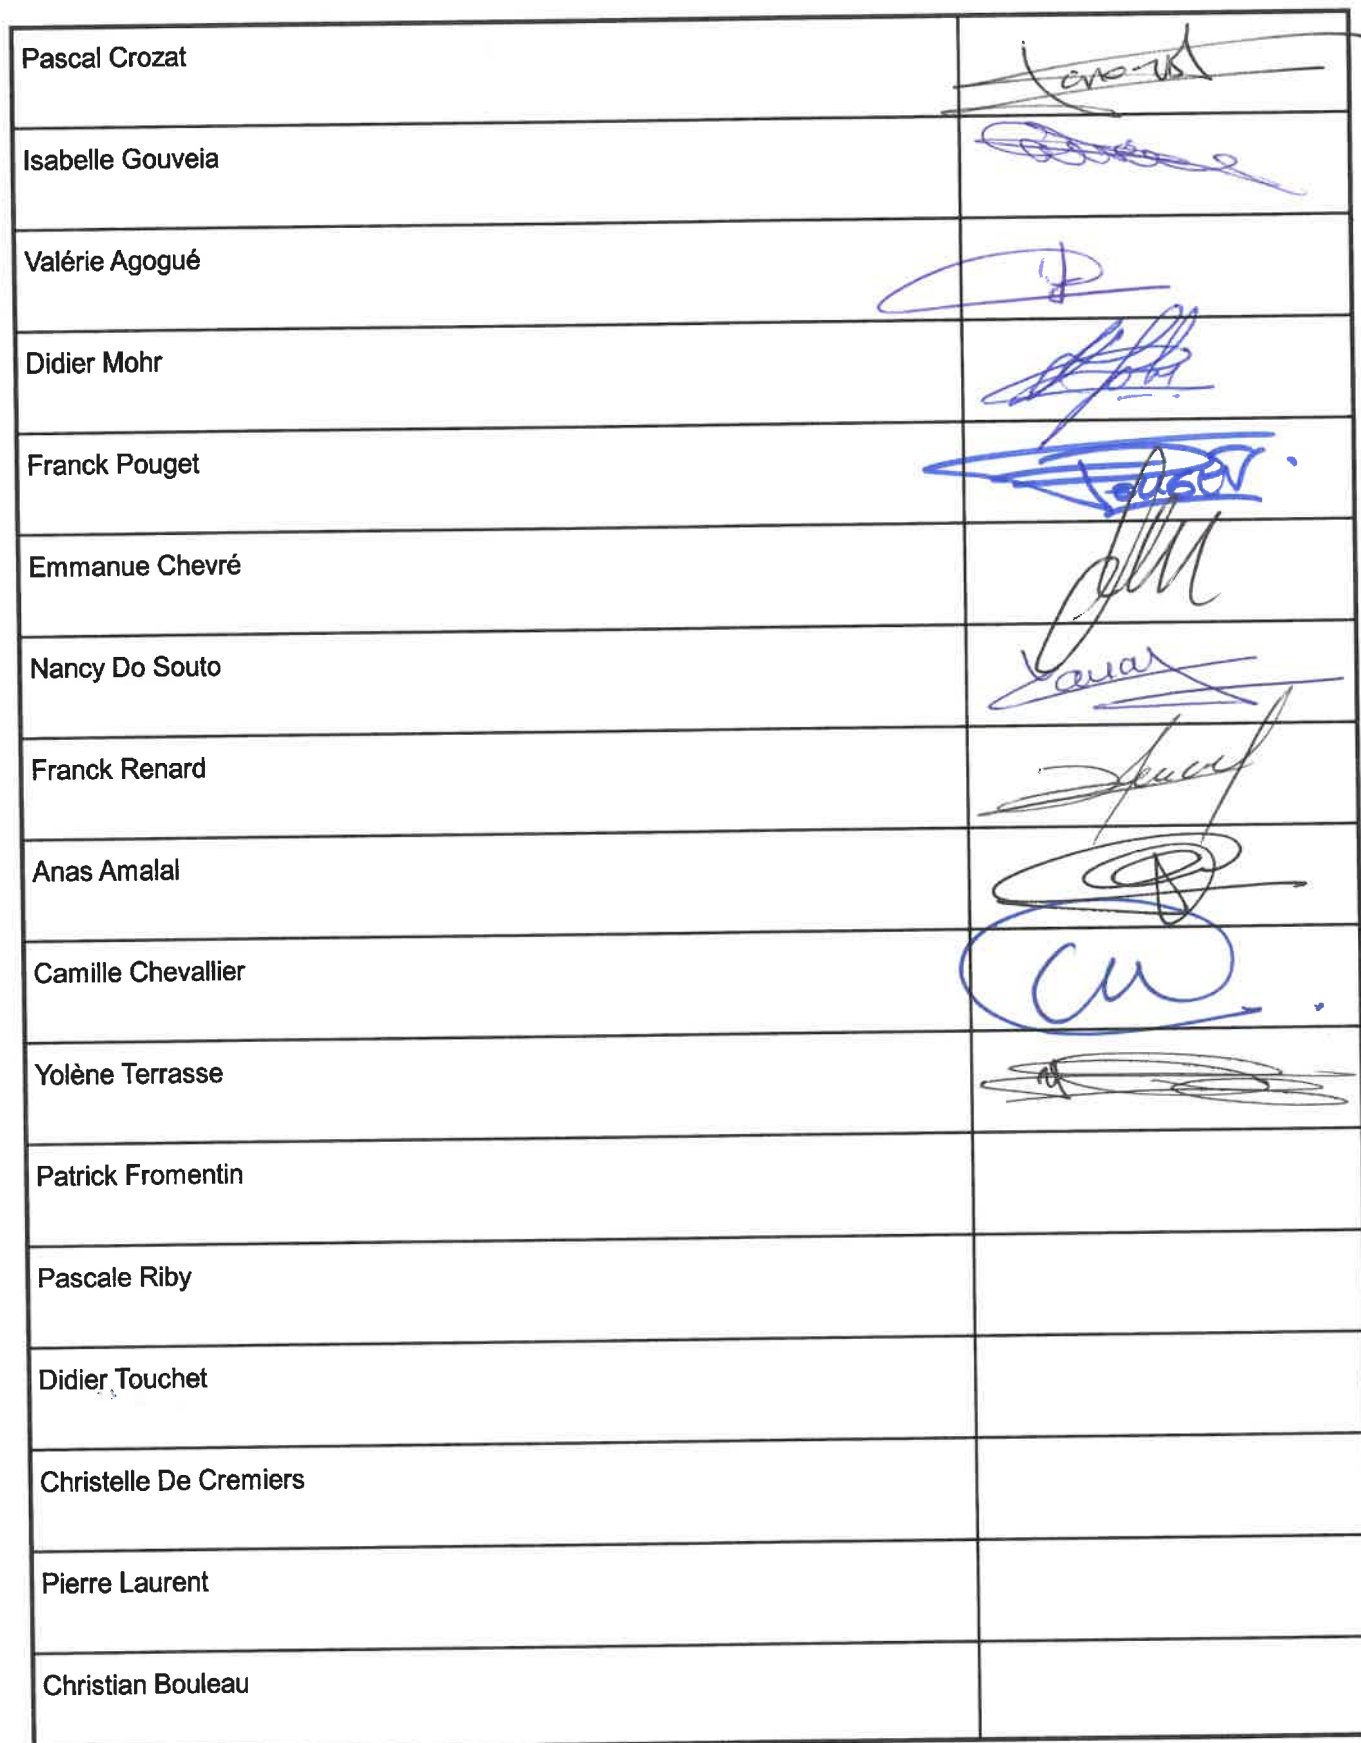 Pascal Crozat
Isabelle Gouveia
Valérie Agogué
Didier Mohr
Franck Pouget
Emmanue Chevré
Nancy Do Souto
Franck Renard
Anas Amalal
Camille Chevallier
Yolène Terrasse
Patrick Fromentin
Pascale Riby
Didier Touchet
Christelle De Cremiers
Pierre Laurent
Christian Bouleau